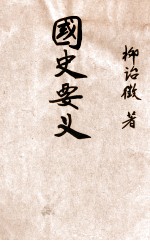 國史要义
柳詒徵 著